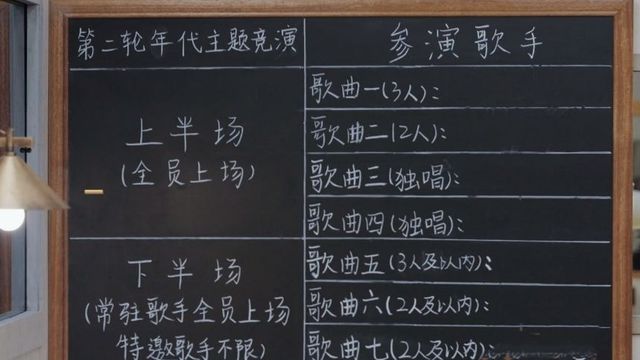 第二轮年代主题竞演
参演歌手
上半场
(全员上场)
歌曲一(3人):
歌曲二(2人):
歌曲三(独唱):
歌曲四(独唱):
下半场
(常驻歌手全员上场
特邀歌手不限)
歌曲五(3人及以内):
歌曲六(2人及以内):
歌曲七(2人及以内):